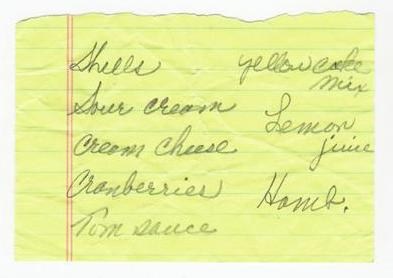 Shells
Sour cream
Cream cheese
Cranberries
Tom sauce
yellow cake
mix
Lemon
juice
Hamb.